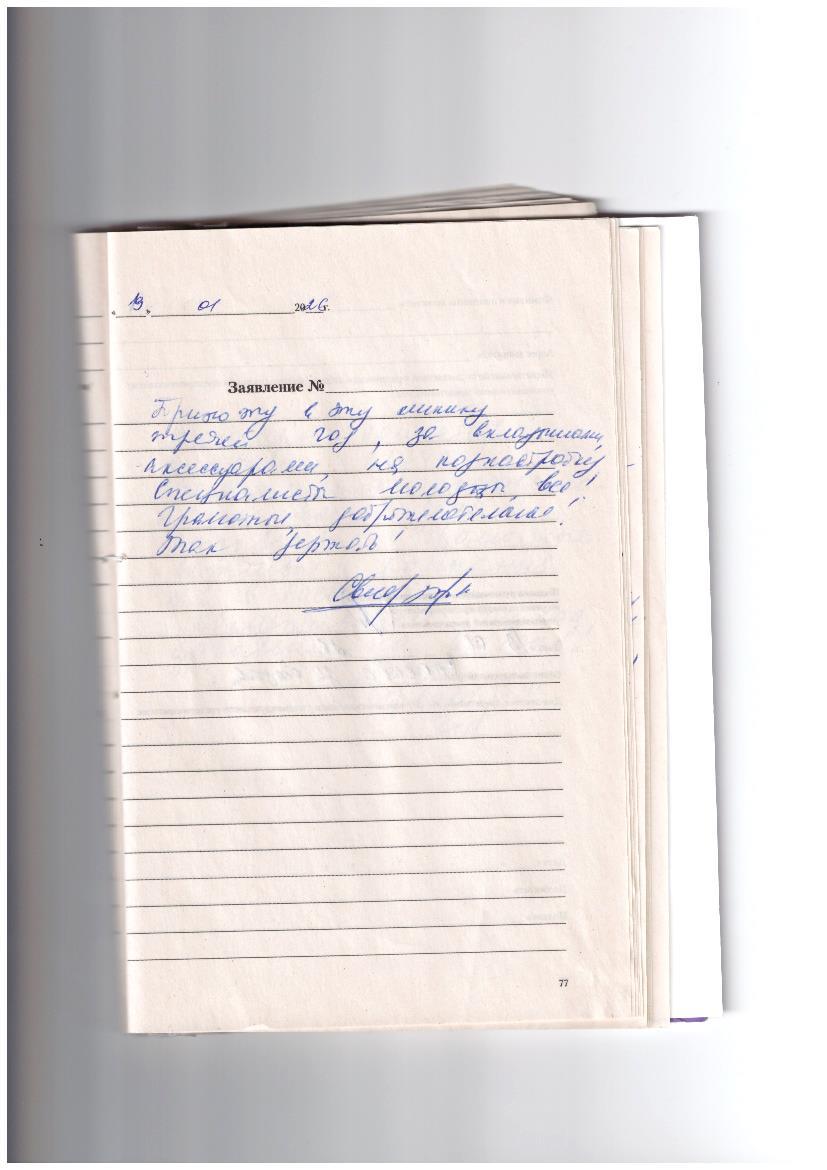 "19" 01 2026г.
Заявление №
Прихожу в эту клинику
третий год, за вкладышами,
аксессуарами, на поднастройку
Специалисты молодцы, все!
Грамотные, доброжелательные!
Так держать!
77